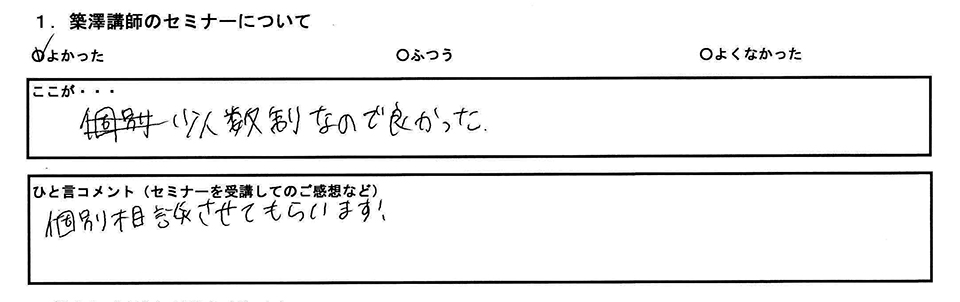 1. 築澤講師のセミナーについて
○よかった ○ふつう ○よくなかった
ここが・・・
個別 少人数制なので良かった.
ひと言コメント（セミナーを受講してのご感想など）
個別相談させてもらいます!